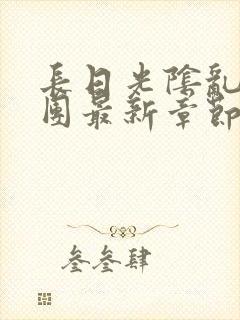 長日光陰亂
團最新章節
叁叁肆